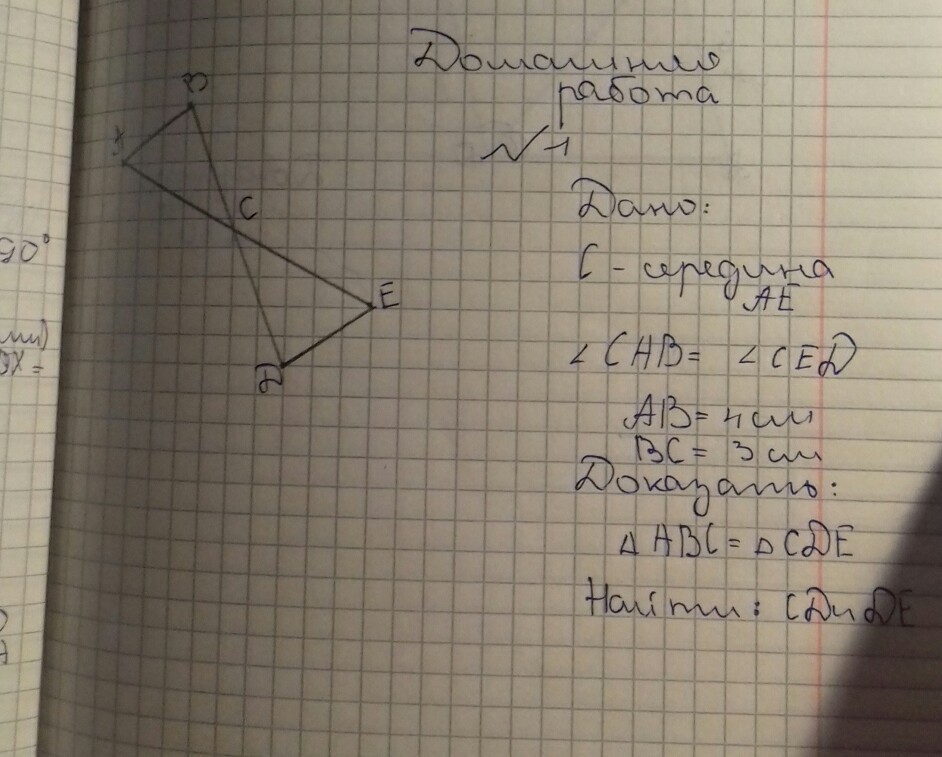 Домашняя
работа
№1
B
A
Дано:
C
C - середина
AE
50°
E
∠CAB = ∠CED
D
AB = 4 см
BC = 3 см
Доказать:
Δ ABC = Δ CDE
Найти: CD и DE